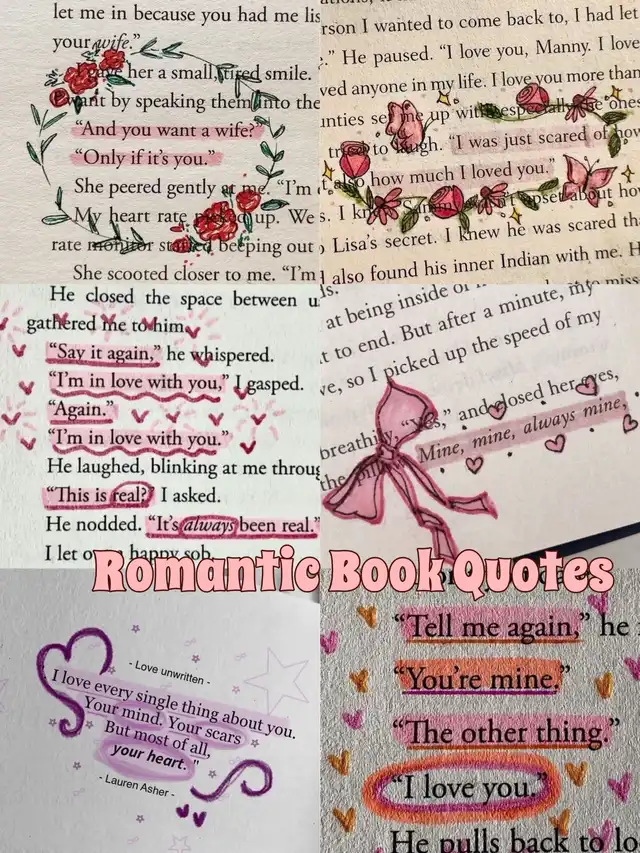 let me in because you had me lis
your wife.”
her a small, tired smile.
want by speaking them into the
“And you want a wife?”
“Only if it’s you.”
She peered gently at me. “I’m
My heart rate picked up. We
rate monitor started beeping out
She scooted closer to me. “I’m
rson I wanted to come back to, I had let
.” He paused. “I love you, Manny. I love
ved anyone in my life. I love you more than
unties set me up with especially the ones
tried to laugh. “I was just scared of how
also how much I loved you.”
s. I upset about ho
Lisa’s secret. I knew he was scared tha
I also found his inner Indian with me. H
ls.
He closed the space between u
gathered me to him.
“Say it again,” he whispered.
“I’m in love with you,” I gasped.
“Again.”
“I’m in love with you.”
He laughed, blinking at me throug
“This is real?” I asked.
He nodded. “It’s always been real.”
I let out a happy sob.
at being inside of
t to end. But after a minute, my
ve, so I picked up the speed of my
breathily, “Yes,” and closed her eyes,
the Mine, mine, always mine,
Romantic Book Quotes
- Love unwritten -
I love every single thing about you.
Your mind. Your scars
But most of all,
your heart. ”
- Lauren Asher -
“Tell me again,” he
“You’re mine.”
“The other thing.”
“I love you.”
He pulls back to lo